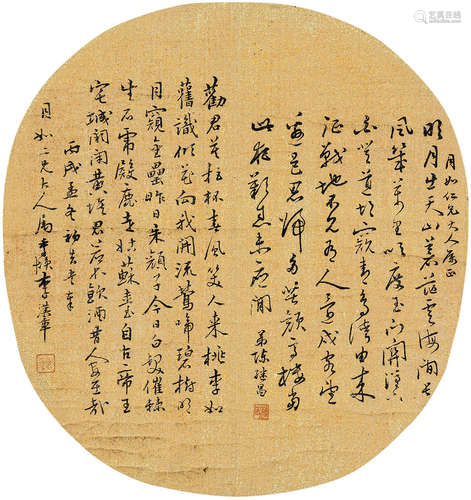 月如仁兄大人屬正
明月出天山蒼茫雲海間長
風幾萬里吹度玉門關漢下
白登道胡窺青海灣由來
征戰地不見有人還戍客望
邊邑思歸多苦顏高樓當
此夜歎息未應閒 弟陳繼昌
勸君莫拒杯春風笑人來桃李如
舊識傾花向我開流鶯啼碧樹明
月窺金罍昨日朱顏子今日白髮催棘
生石虎殿鹿走姑蘇臺自古帝王
宅城闕閉黃埃君若不飲酒昔人安在哉
丙戌孟冬初
月如二兄大人屬 李